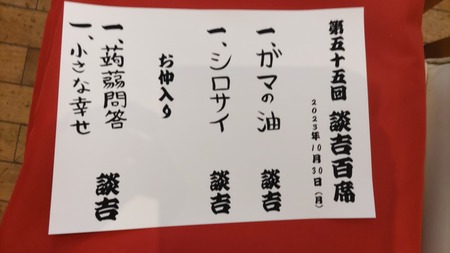 第五十五回 談吉百席
2023年10月30日(月)
一、ガマの油 談吉
一、シロサイ 談吉
お仲入り
一、蒟蒻問答
一、小さな幸せ 談吉